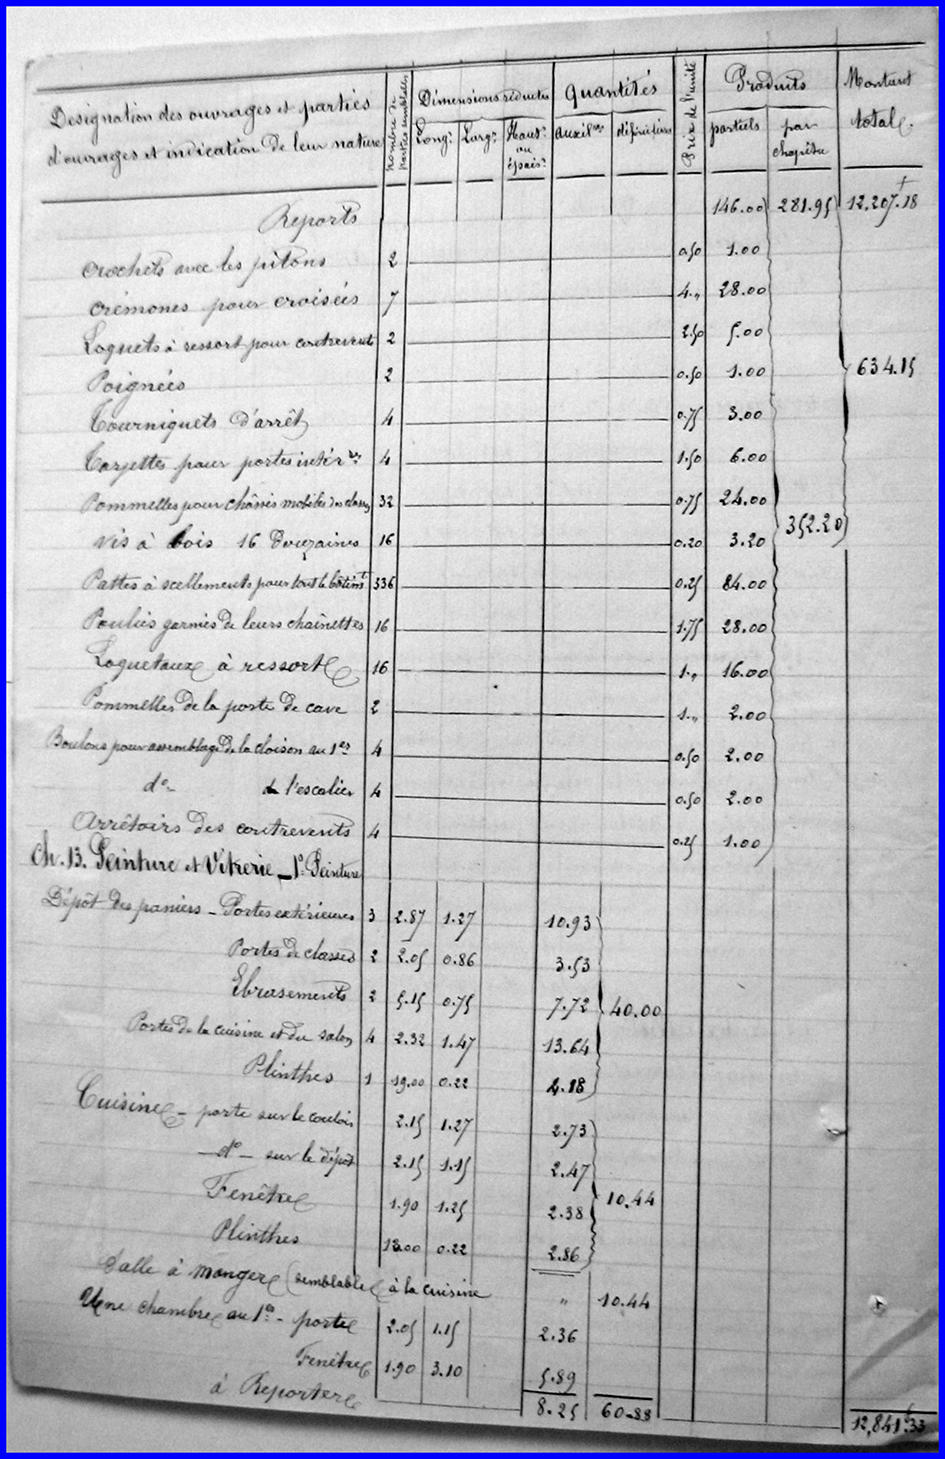 Designation des ouvrages et parties d'ouvrages et indication de leur nature
nombre de parties semblables
Dimensions réduites
Long.r
Larg.r
Haut.r ou épais.r
Quantités
auxil.res
définitives
Prix de l'unité
Produits
partiels
par chapitre
Montant total.
Reports 146.00 281.95 12,207.18
crochets avec les pitons 2 0.50 1.00
crémones pour croisées 7 4.„ 28.00
Loquets à ressort pour contrevents 2 2.50 5.00
Poignées 2 0.50 1.00 634.15
Tourniquets d'arrêt 4 0.75 3.00
Targettes pour portes intér.res 4 1.50 6.00
Pommelles pour châssis mobiles des classes 32 0.75 24.00
352.20
vis à bois 16 Douzaines 16 0.20 3.20
Pattes à scellements pour tout le bâtim.t 336 0.25 84.00
Poulies garnies de leurs chaînettes 16 1.75 28.00
Loquetaux à ressort 16 1.„ 16.00
Pommelles de la porte de cave 2 1.„ 2.00
Boulons pour assemblage de la cloison au 1er 4 0.50 2.00
d°- de l'escalier 4 0.50 2.00
Arrêtoirs des contrevents 4 0.25 1.00
Ch. 13. Peinture et Vitrerie _ 1° Peinture
Dépôt des paniers - Portes extérieures 3 2.87 1.27 10.93
Portes de classes 2 2.05 0.86 3.53
Ebrasements 2 5.15 0.75 7.72 40.00
Portes de la cuisine et du salon 4 2.32 1.47 13.64
Plinthes 1 19.00 0.22 4.18
Cuisine - porte sur le couloir 2.15 1.27 2.73
- d° - sur le dépôt 2.15 1.15 2.47
Fenêtre 1.90 1.25 2.38 10.44
Plinthes 13.00 0.22 2.86
Salle à manger (semblable à la cuisine „ 10.44
Une chambre au 1er - porte 2.05 1.15 2.36
Fenêtre 1.90 3.10 5.89
à Reporter 8.25 60.88 12,841.33